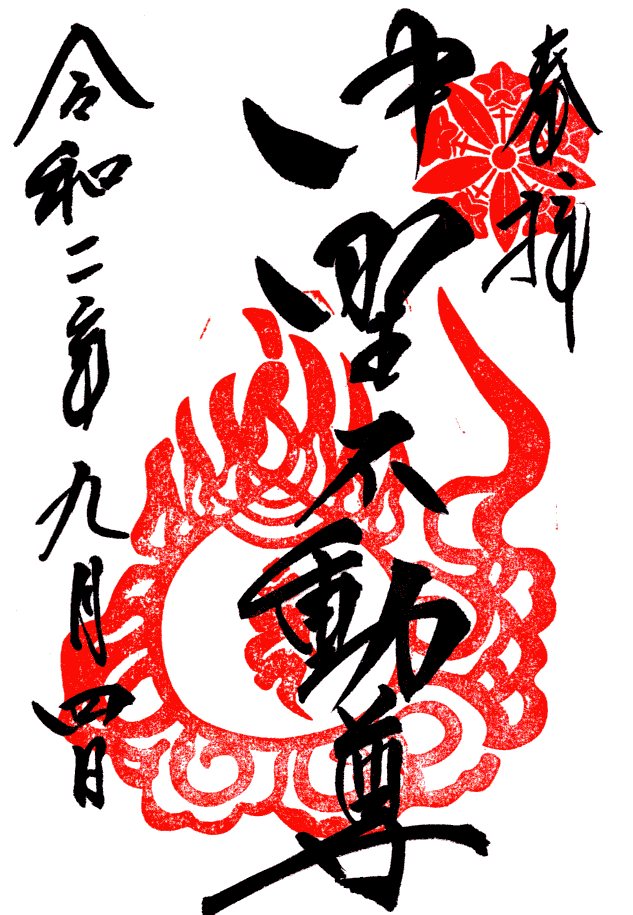 奉拝
不動尊
令和二年九月四日